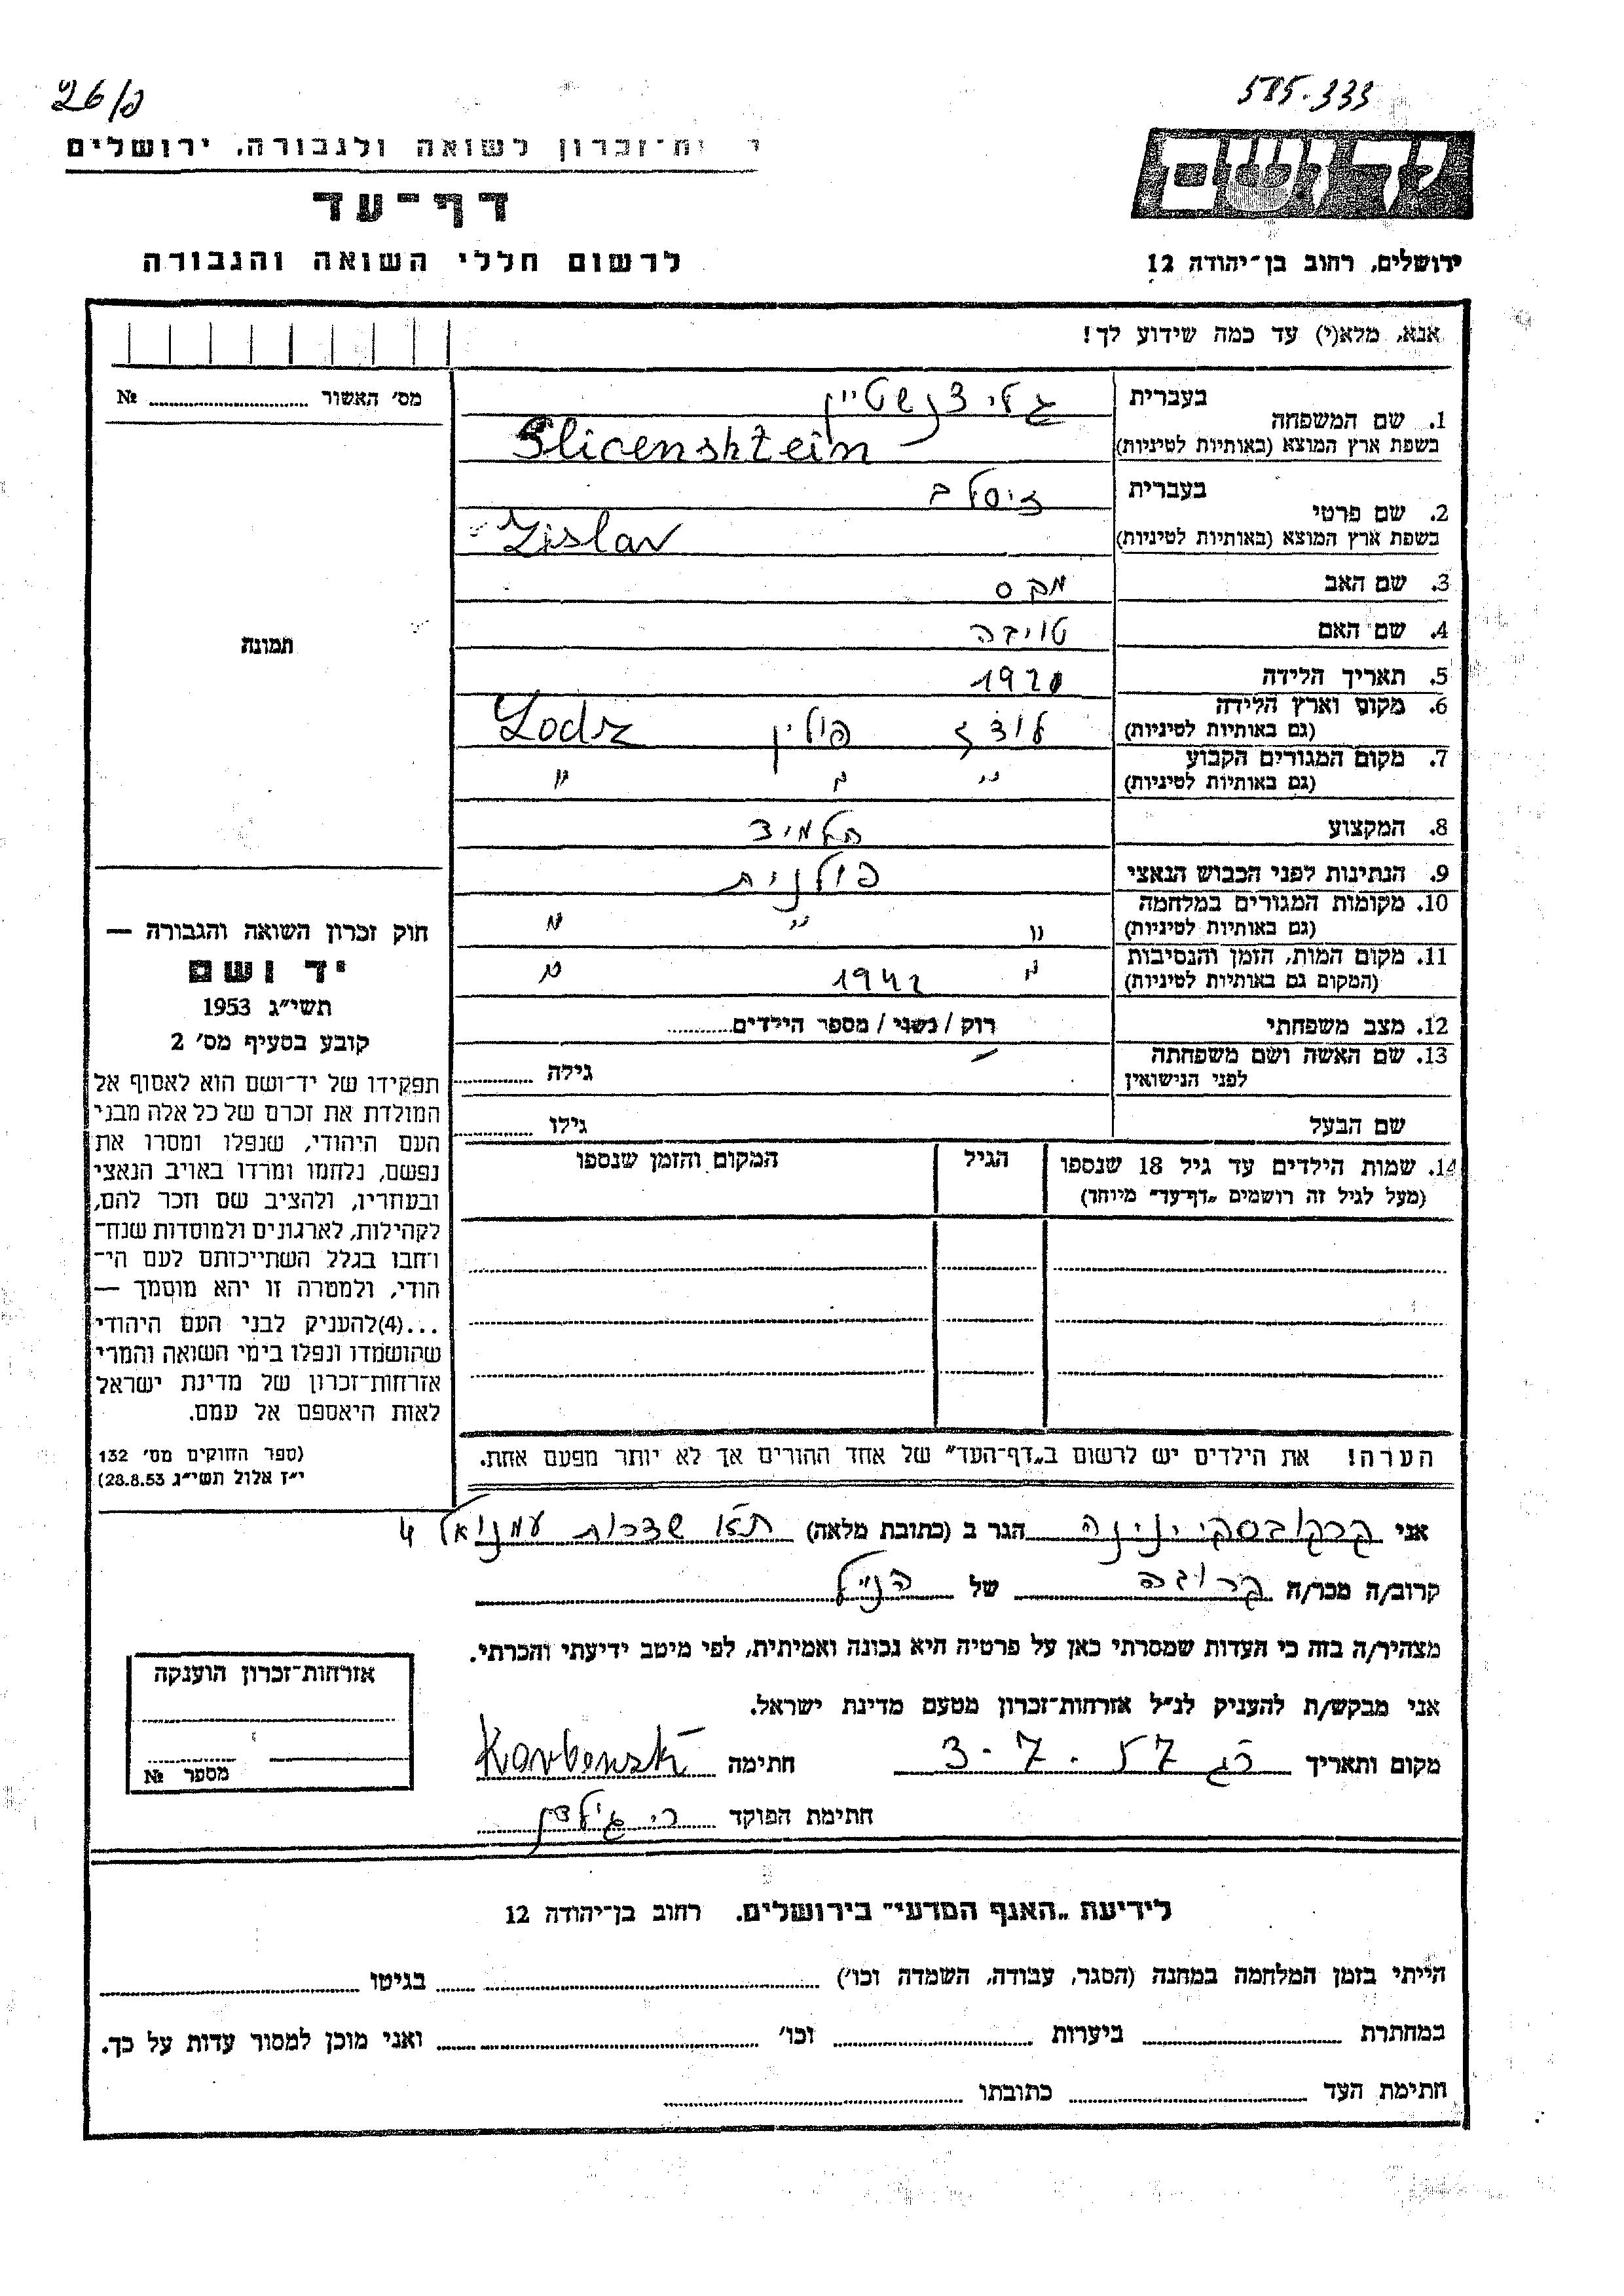 26/ג
585.333
ות־זכרון לשואה ולגבורה, ירושלים
דף־עד
לרשום חללי השואה והגבורה
יד ושם
ירושלים, רחוב בן־יהודה 12
אנא, מלא(י) עד כמה שידוע לך!
מס׳ האשור № 
1. שם המשפחה
בעברית גליצנשטיין
בשפת ארץ המוצא (באותיות לטיניות) Glicenshtein
2. שם פרטי
בעברית זיסלב
בשפת ארץ המוצא (באותיות לטיניות) Zislav
3. שם האב מקס
4. שם האם טויבה
5. תאריך הלידה
6. מקום וארץ הלידה
(גם באותיות לטיניות) לודז פולין Lodz
7. מקום המגורים הקבוע
(גם באותיות לטיניות) " " "
8. המקצוע תלמיד
9. הנתינות לפני הכבוש הנאצי פולנית
10. מקומות המגורים במלחמה
(גם באותיות לטיניות) " " "
11. מקום המות, הזמן והנסיבות
(המקום גם באותיות לטיניות) " 1942 "
12. מצב משפחתי רוק / נשוי / מספר הילדים
13. שם האשה ושם משפחתה
לפני הנישואין גילה
שם הבעל גילו
14. שמות הילדים עד גיל 18 שנספו
(מעל לגיל זה רושמים „דף־עד״ מיוחד)
הגיל
המקום והזמן שנספו
הערה! את הילדים יש לרשום ב„דף־העד״ של אחד ההורים אך לא יותר מפעם אחת.
תמונה
חוק זכרון השואה והגבורה —
יד ושם
תשי״ג 1953
קובע בסעיף מס׳ 2
תפקידו של יד־ושם הוא לאסוף אל
המולדת את זכרם של כל אלה מבני
העם היהודי, שנפלו ומסרו את
נפשם, נלחמו ומרדו באויב הנאצי
ובעוזריו, ולהציב שם וזכר להם,
לקהילות, לארגונים ולמוסדות שנח־
רבו בגלל השתייכותם לעם הי־
הודי, ולמטרה זו יהא מוסמך —
...(4)להעניק לבני העם היהודי
שהושמדו ונפלו בימי השואה והמרי
אזרחות־זכרון של מדינת ישראל
לאות היאספם אל עמם.
(ספר החוקים מס׳ 132
י״ז אלול תשי״ג 28.8.53)
אני קרקובסקי ינינה הגר ב (כתובת מלאה) ת״א שדרות עמנואל 4
קרוב/ה מכר/ה קרובה של הנ״ל
מצהיר/ה בזה כי העדות שמסרתי כאן על פרטיה היא נכונה ואמיתית, לפי מיטב ידיעתי והכרתי.
אני מבקש/ת להעניק לנ״ל אזרחות־זכרון מטעם מדינת ישראל.
מקום ותאריך רג 3-7.57 חתימה
חתימת הפוקד
אזרחות־זכרון הוענקה
מספר №
לידיעת „האגף המדעי״ בירושלים. רחוב בן־יהודה 12
הייתי בזמן המלחמה במחנה (הסגר, עבודה, השמדה וכו׳) בגיטו
במחתרת ביערות וכו׳ ואני מוכן למסור עדות על כך.
חתימת העד כתובתו